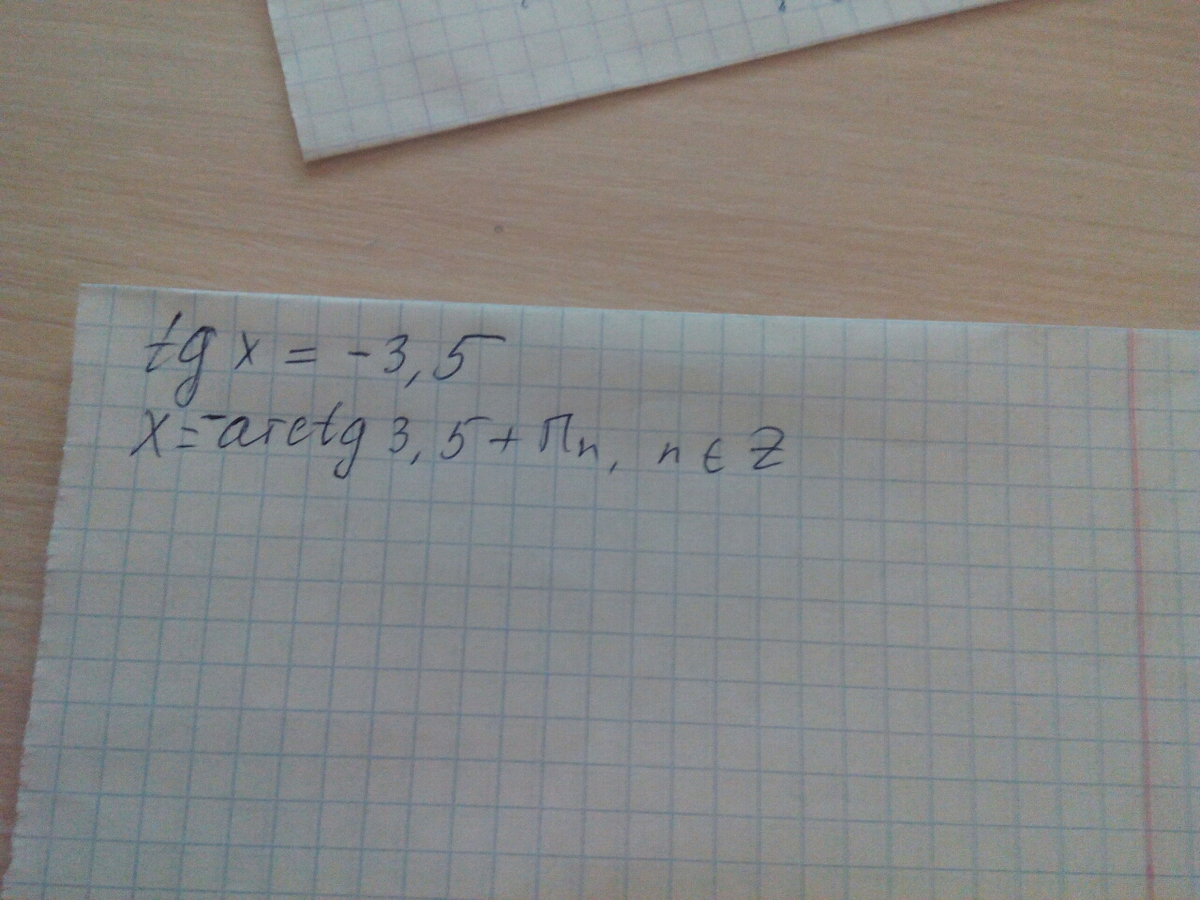 tg x = -3,5
x = -arctg 3,5 + Пn, n ∈ Z